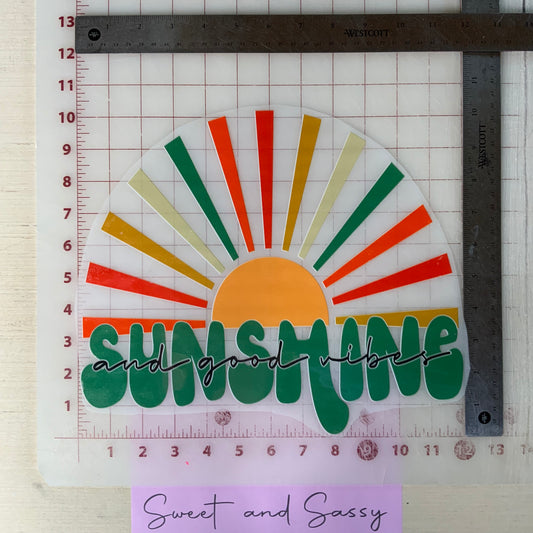 WESTCOTT
WESTCOTT
SUNSHINE
and good vibes
Sweet and Sassy
13
12
11
10
9
8
7
6
5
4
3
2
1
1 2 3 4 5 6 7 8 9 10 11 12 13